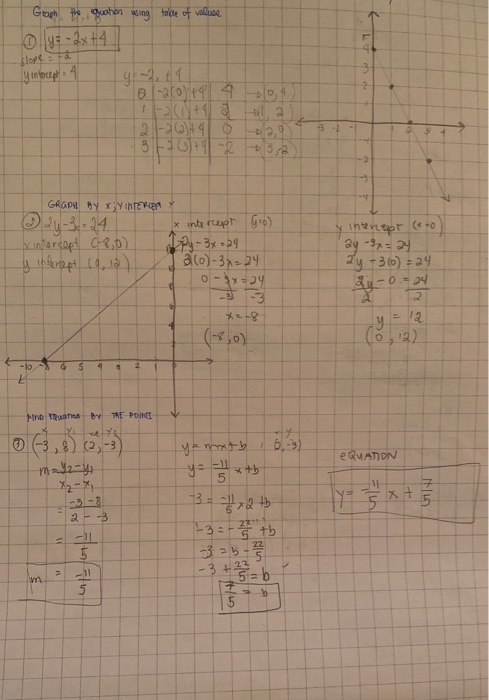 Graph the equation using table of values
① y = -2x+4
slope = -2
y intercept = 4
0 -2(0)+4 4 → (0,4)
1 -2(1)+4 2 → (1, 2)
2 -2(2)+4 0 → (2,0)
3 -2(3)+4 -2 → (3,-2)
GRAPH BY X; Y INTERCEPT
② 2y-3x=24
x intercept (-8,0)
y intercept (0, 12)
x intercept (y=0)
2y-3x=24
2(0)-3x=24
0-3x=24
-3 -3
x=-8
(-8,0)
y intercept (x=0)
2y-3x=24
2y-3(0)=24
2y-0=24
2 2
y = 12
(0, 12)
-10 -8 6 5 4 3 2 1 0
FIND EQUATION BY THE POINTS
③ (-3, 8) (2, -3)
m = y₂-y₁
x₂-x₁
= -3-8
2--3
= -11
5
m = -11
5
y = mx+b ; (2,-3)
y = -11/5 x+b
-3 = -11/5 x2+b
-3 = -22/5 +b
-3 = b - 22/5
-3 + 22/5 = b
7/5 = b
EQUATION
y = -11/5 x + 7/5